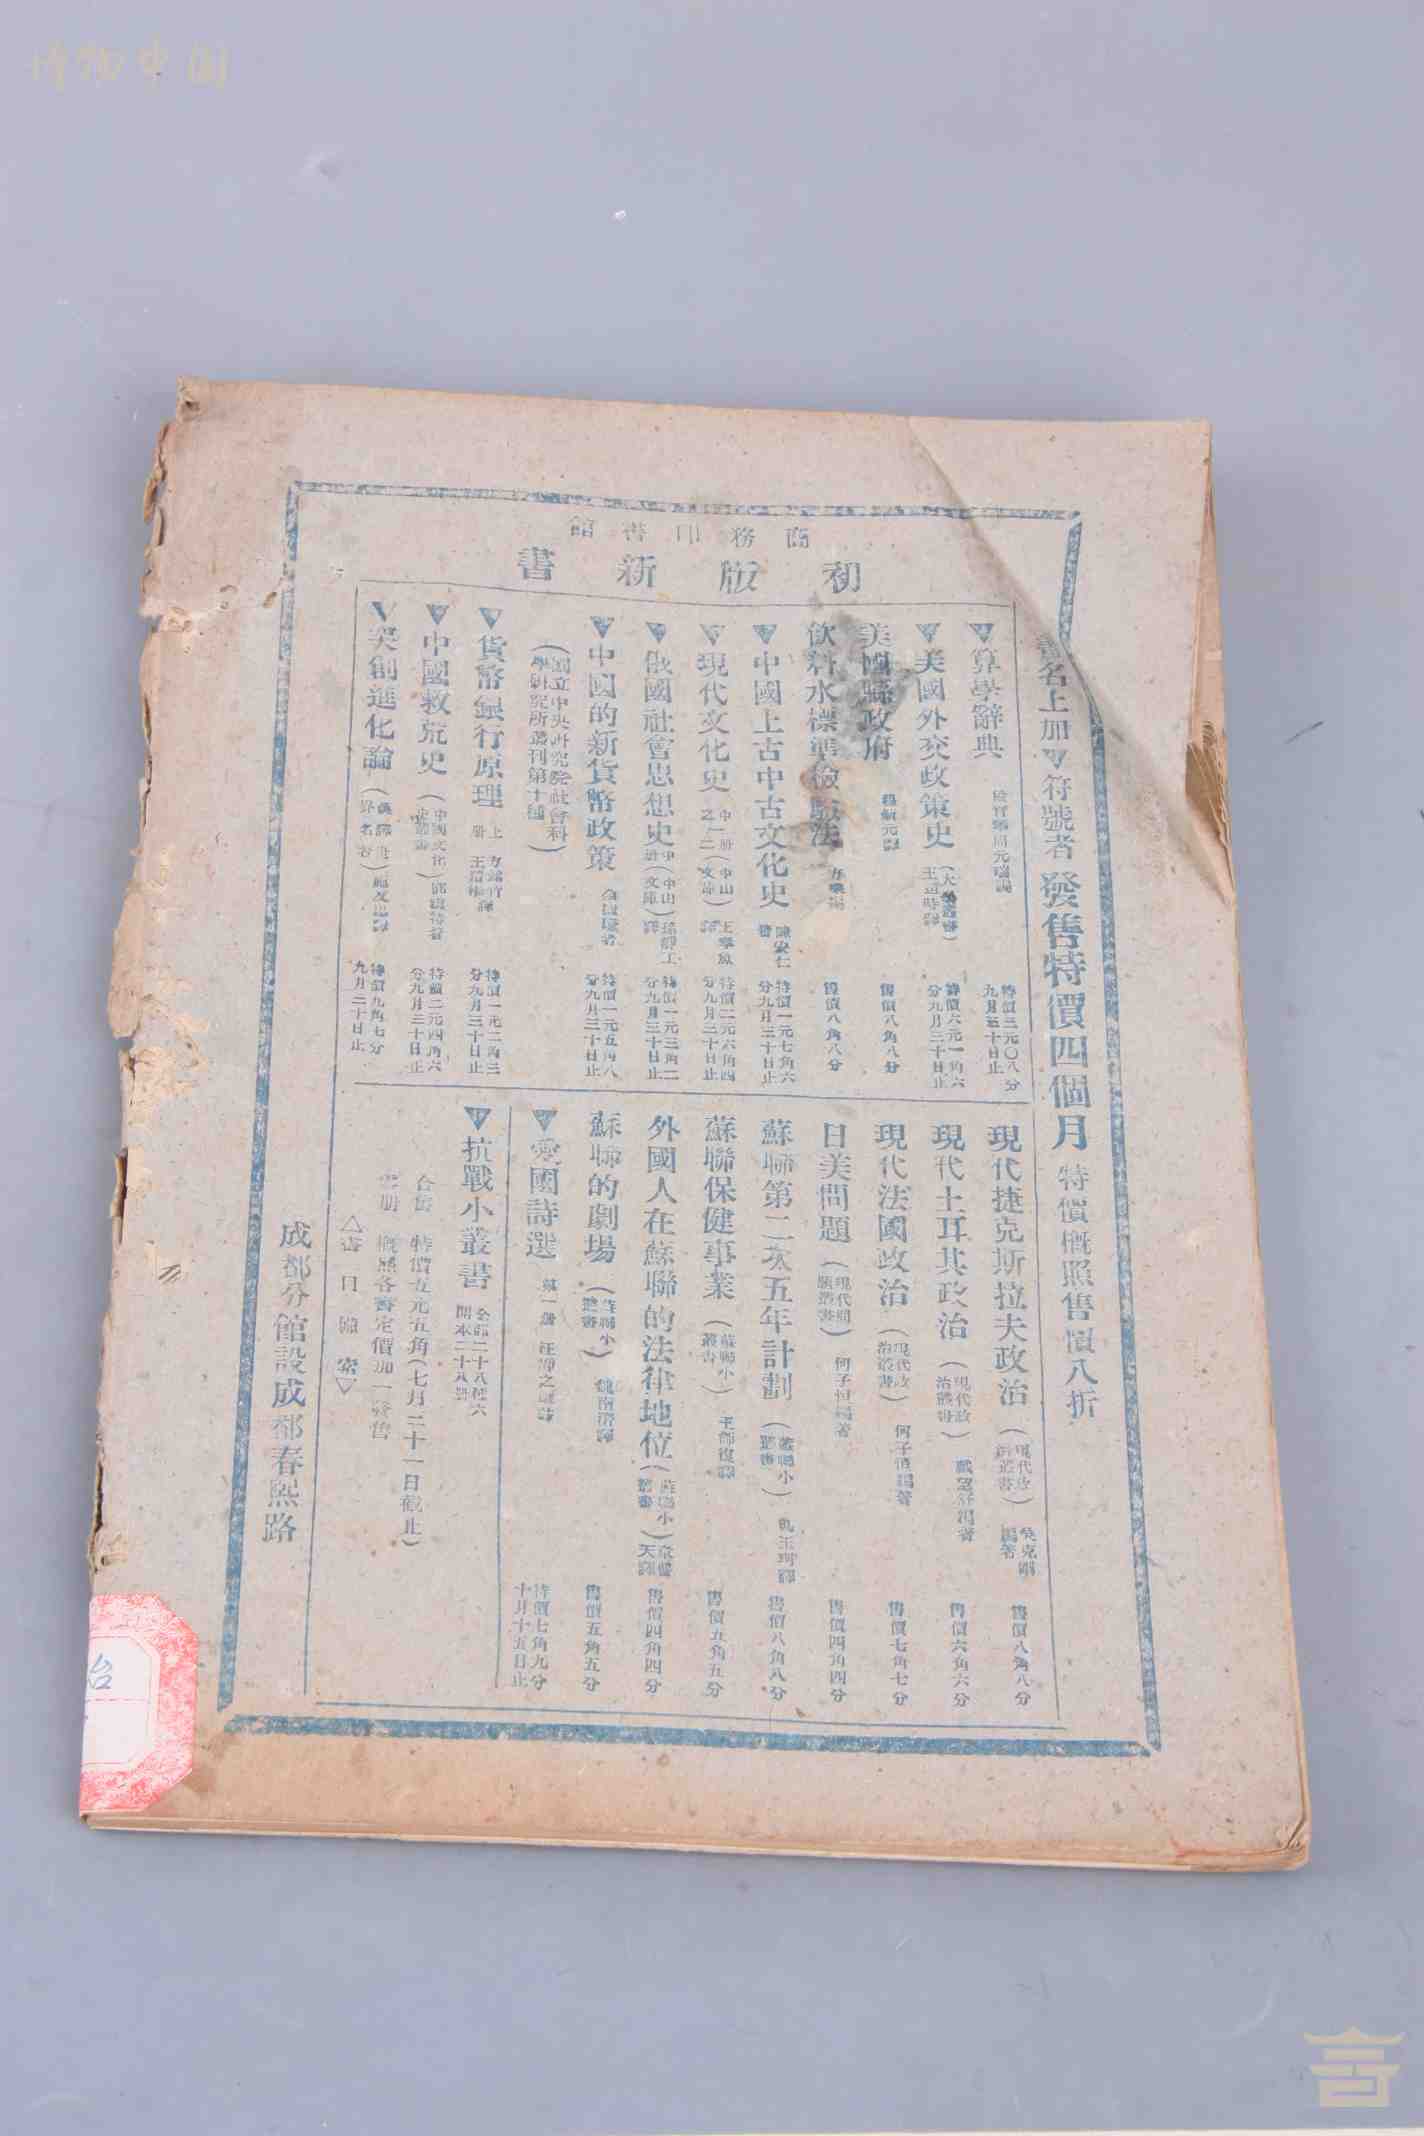 博物中国
商務印書館
初版新書
書名上加▼符號者 發售特價四個月 特價概照售價八折
▼算學辭典 特價三元〇八分 九月三十日止
▼美國外交政策史 (大學叢書) 王造時譯 特價六元一角六分 九月三十日止
美國縣政府 售價八角八分
飲料水標準檢驗法 售價八角八分
▼中國上古中古文化史 陳安仁著 特價一元七角六分 九月三十日止
▼現代文化史 中册之一二 (中山文庫) 王孝魚譯 特價二元六角四分 九月三十日止
▼俄國社會思想史 中册 (中山文庫) 孫靜工譯 特價一元三角二分 九月三十日止
▼中國的新貨幣政策 特價一元五角八分 九月三十日止
(國立中央研究院社會科學研究所叢刊第十種)
▼貨幣銀行原理 上册 特價一元二角三分 九月三十日止
▼中國救荒史 (中國文化史叢書) 特價二元四角六分 九月三十日止
▼突創進化論 (漢譯世界名著) 特價九角七分 九月三十日止
現代捷克斯拉夫政治 (現代政治叢書) 吳克剛編著 售價八角八分
現代土耳其政治 (現代政治叢書) 售價六角六分
現代法國政治 (現代政治叢書) 何子恒編著 售價七角七分
日美問題 (現代問題叢書) 何子恒編著 售價四角四分
蘇聯第二次五年計劃 (蘇聯小叢書) 售價八角八分
蘇聯保健事業 (蘇聯小叢書) 王師復譯 售價五角五分
外國人在蘇聯的法律地位 (蘇聯小叢書) 售價四角四分
蘇聯的劇場 (蘇聯小叢書) 售價五角五分
▼愛國詩選 第一册 特價七角九分 十月十五日止
▼抗戰小叢書 全部二十八種六開本二十八册
合售 特價五元五角(七月三十一日截止)
零册 概照各書定價加一發售
△書目備索▽
成都分館設成都春熙路